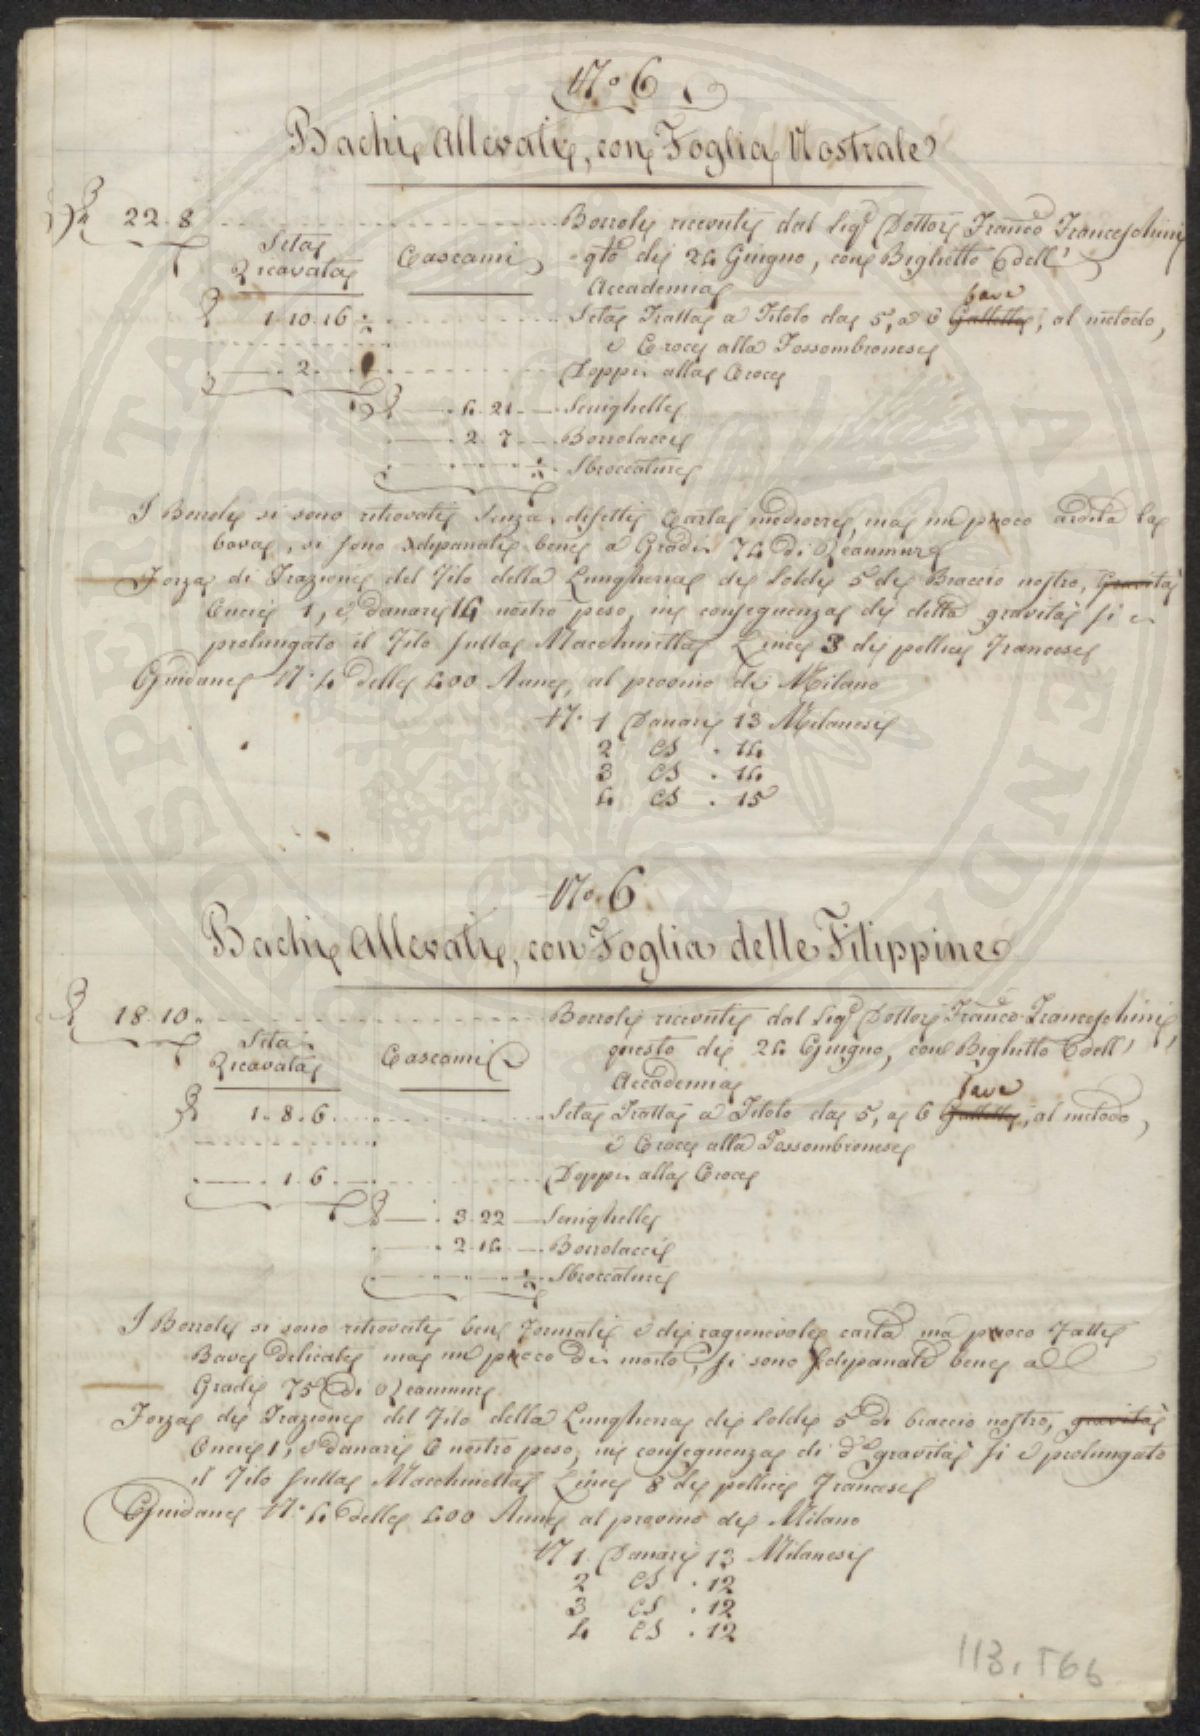 N.o 6
Bachi Allevati, con Foglia Nostrale
22. 8 Bozzoli ricevuti dal Sig.r Dottor Fran.co Franceschini
Seta Ricavata Cascami q.to dì 24 Giugno, con Biglietto dell'
Accademia
bave
1. 10. 16 Seta Tratta a Titolo da 5, a 6 Gallette, al metodo,
e Croce alla Fossombronese
2. Doppi alla Croce
4. 21 Strighelle
2. 7 Bozzolacci
Sbroccature
I Bozzoli si sono ritrovati senza difetti Carta mediocre, ma un poco ardita la
bava, si sono sdipanati bene a Gradi 74 di Reaumur
Forza di Trazione del Filo della Lungheria di Soldi 5 di Braccio nostro, Gravità
Oncie 1, e danari 14 nostro peso, in conseguenza di detta gravità si è
prolungato il Filo sulla Macchinetta Linee 3 di pollice Francese
Guidane N.o 4 delle 400 Aune, al provino di Milano
N.o 1 Danari 13 Milanesi
2 Cd . 14
3 Cd . 14
4 Cd . 15
N.o 6
Bachi Allevati, con Foglia delle Filippine
18. 10. Bozzoli ricevuti dal Sig.r Dottor Fran.co Franceschini
Seta Ricavata Cascami questo dì 24 Giugno, con Biglietto dell'
Accademia
bave
1. 8. 6. Seta Tratta a Titolo da 5, a 6 Gallette, al metodo,
e Croce alla Fossombronese
1. 6. Doppi alla Croce
3. 22 Strighelle
2. 14 Bozzolacci
Sbroccature
I Bozzoli si sono ritrovati bene formati e di ragionevole carta ma poco fatti
Bave delicate ma un poco di morto, si sono sdipanati bene a
Gradi 75 di Reaumur
Forza di Trazione del Filo della Lungheria di Soldi 5 di braccio nostro, gravità
Oncie 1, e danari 6 nostro peso, in conseguenza di d.a gravità si è prolungato
il Filo sulla Macchinetta Linee 8 di pollice Francese
Guidane N.o 4 delle 400 Aune al provino di Milano
N 1. Danari 13 Milanesi
2 Cd . 12
3 Cd . 12
4 Cd . 12
113, T66